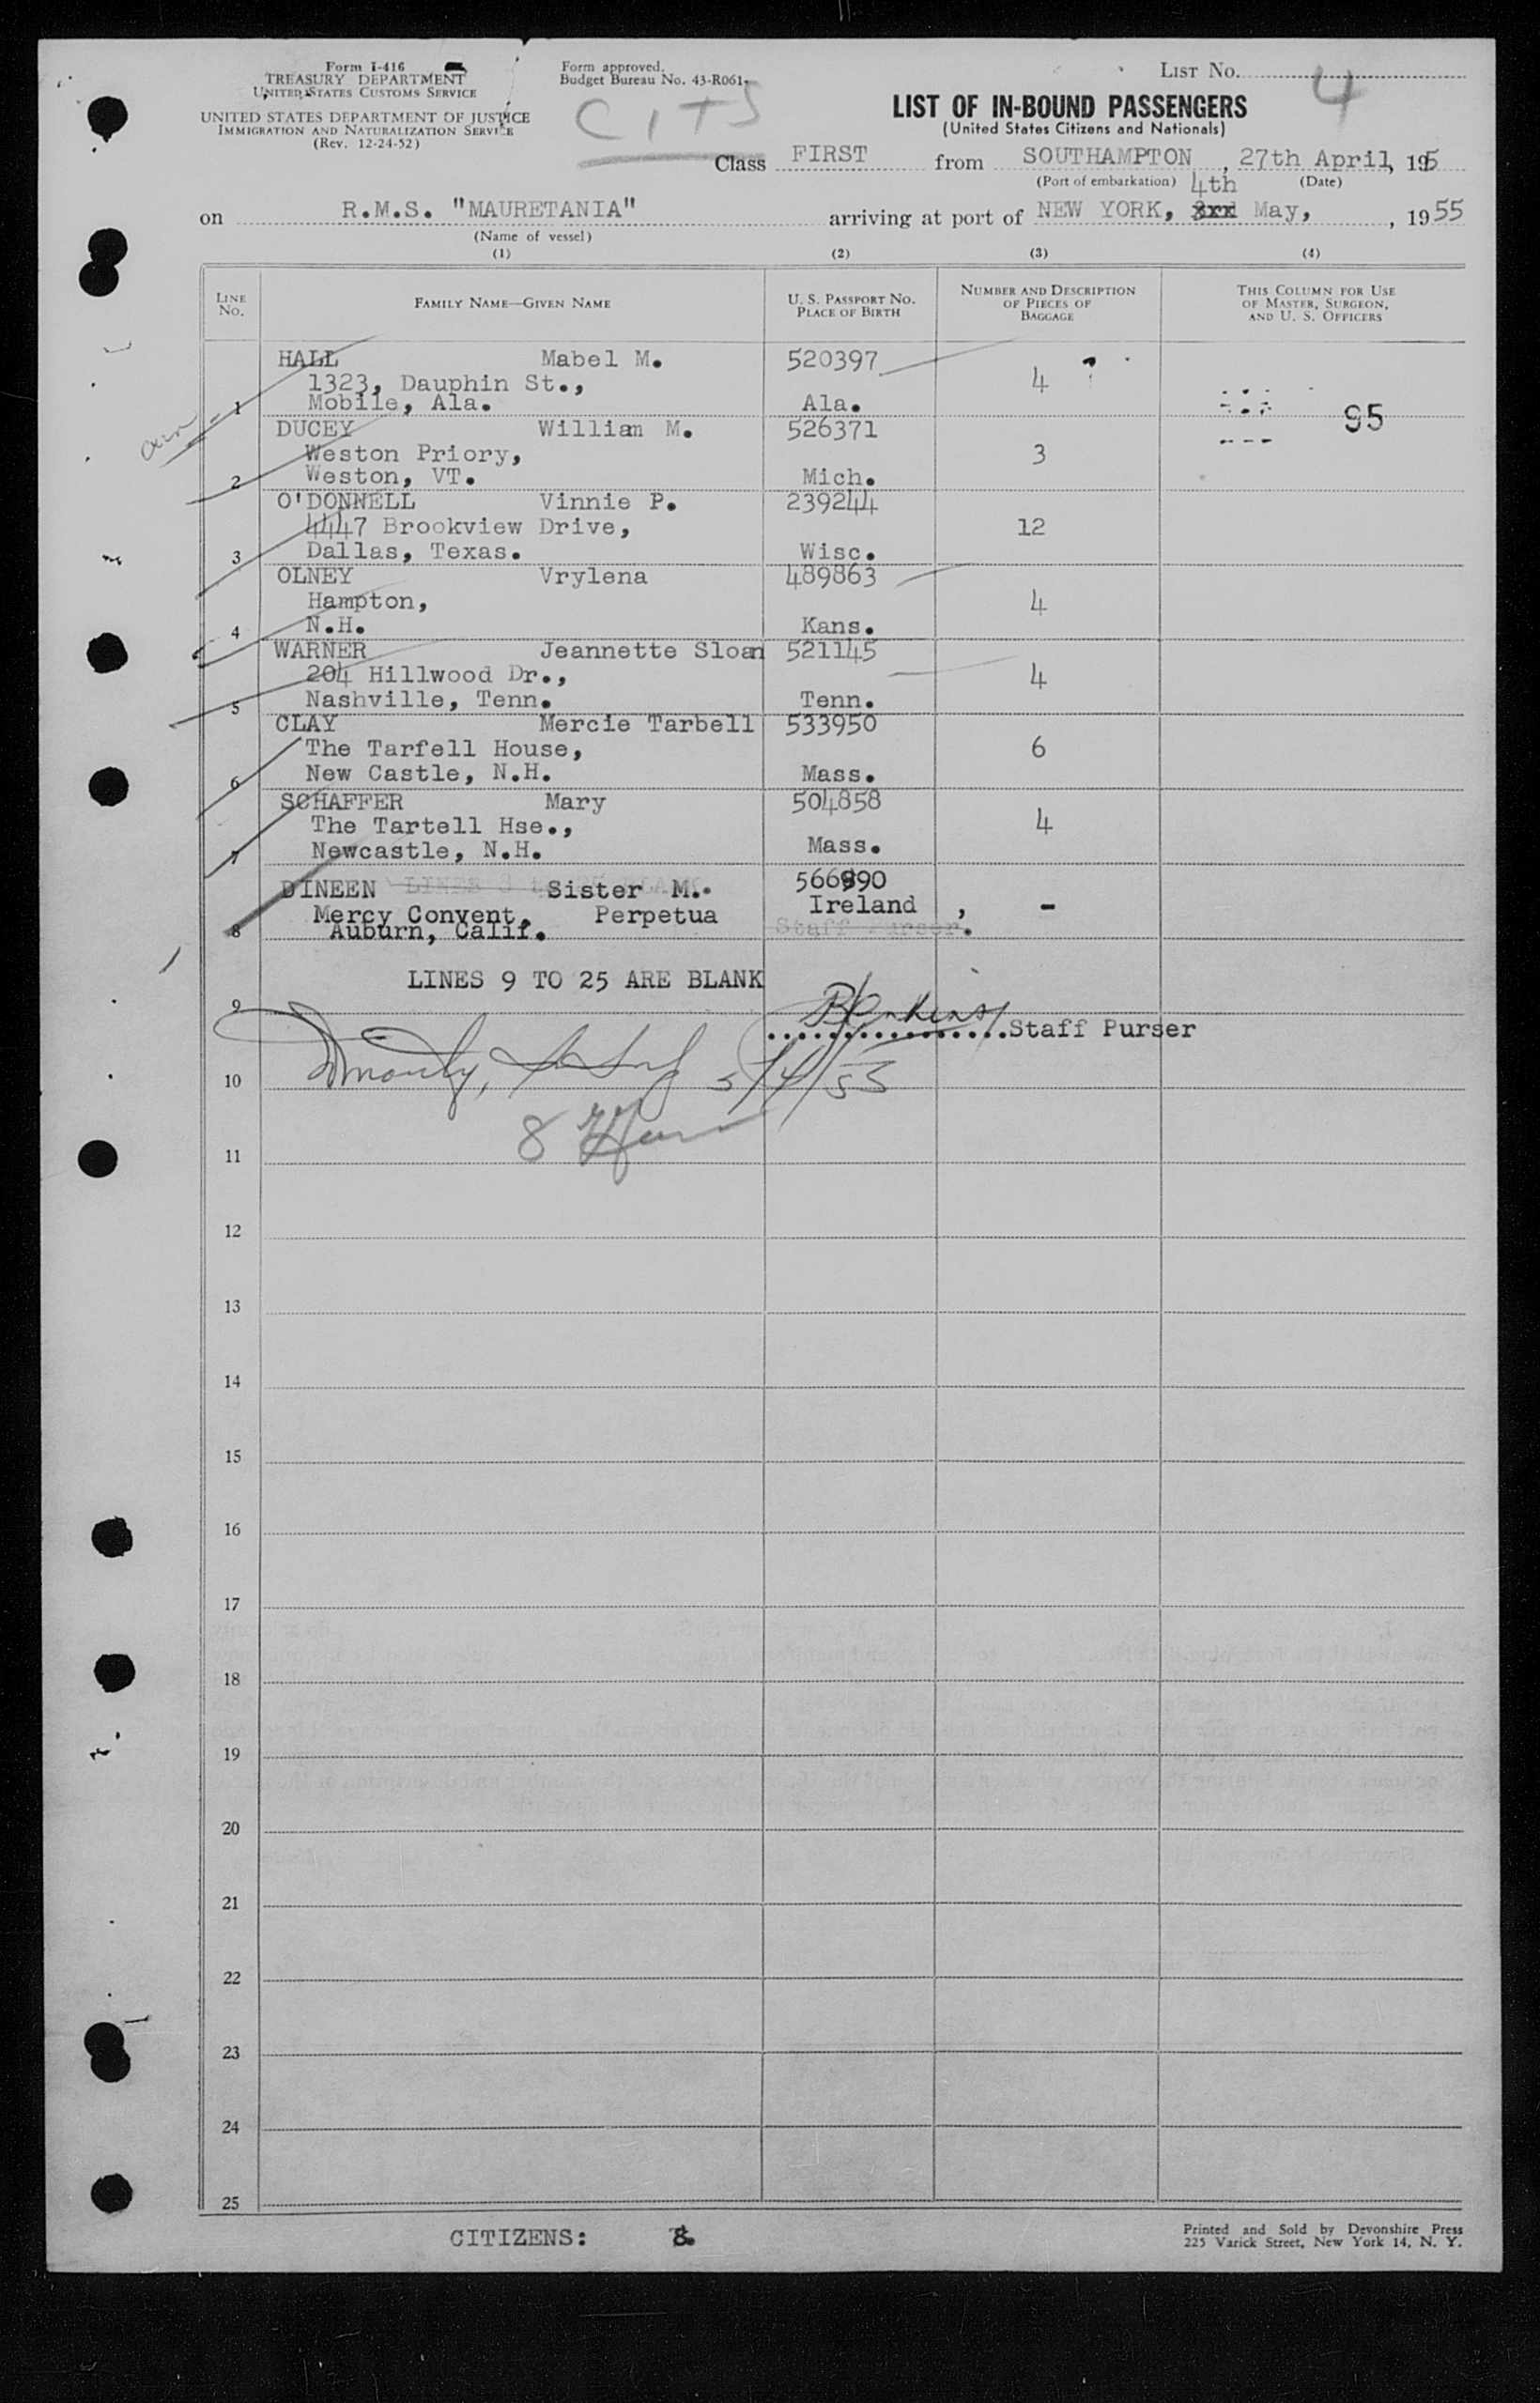 Form I-416
TREASURY DEPARTMENT
UNITED STATES CUSTOMS SERVICE
UNITED STATES DEPARTMENT OF JUSTICE
IMMIGRATION AND NATURALIZATION SERVICE
(Rev. 12-24-52)
Form approved.
Budget Bureau No. 43-R061-
CITS
LIST No. 4
LIST OF IN-BOUND PASSENGERS
(United States Citizens and Nationals)
Class FIRST from SOUTHAMPTON, 27th April, 195
(Port of embarkation) (Date)
4th
on R.M.S. "MAURETANIA" arriving at port of NEW YORK, 3rd May, , 1955
(Name of vessel)
(1) (2) (3) (4)
LINE No. FAMILY NAME—GIVEN NAME U. S. PASSPORT NO. PLACE OF BIRTH NUMBER AND DESCRIPTION OF PIECES OF BAGGAGE THIS COLUMN FOR USE OF MASTER, SURGEON, AND U. S. OFFICERS
HALL Mabel M. 520397
1323, Dauphin St., 4
1 Mobile, Ala. Ala. 95
DUCEY William M. 526371
Weston Priory, 3
2 Weston, VT. Mich.
O'DONNELL Vinnie P. 239244
4447 Brookview Drive, 12
3 Dallas, Texas. Wisc.
OLNEY Vrylena 489863
Hampton, 4
4 N.H. Kans.
WARNER Jeannette Sloan 521145
204 Hillwood Dr., 4
5 Nashville, Tenn. Tenn.
CLAY Mercie Tarbell 533950
The Tarfell House, 6
6 New Castle, N.H. Mass.
SCHAFFER Mary 504858
The Tartell Hse., 4
7 Newcastle, N.H. Mass.
DINEEN Sister M. 566890
Mercy Convent, Perpetua Ireland , -
8 Auburn, Calif. Staff Purser.
LINES 9 TO 25 ARE BLANK
9
Staff Purser
10 5/4/55
8
11
12
13
14
15
16
17
18
19
20
21
22
23
24
25
CITIZENS: 8.
Printed and Sold by Devonshire Press
225 Varick Street, New York 14, N. Y.